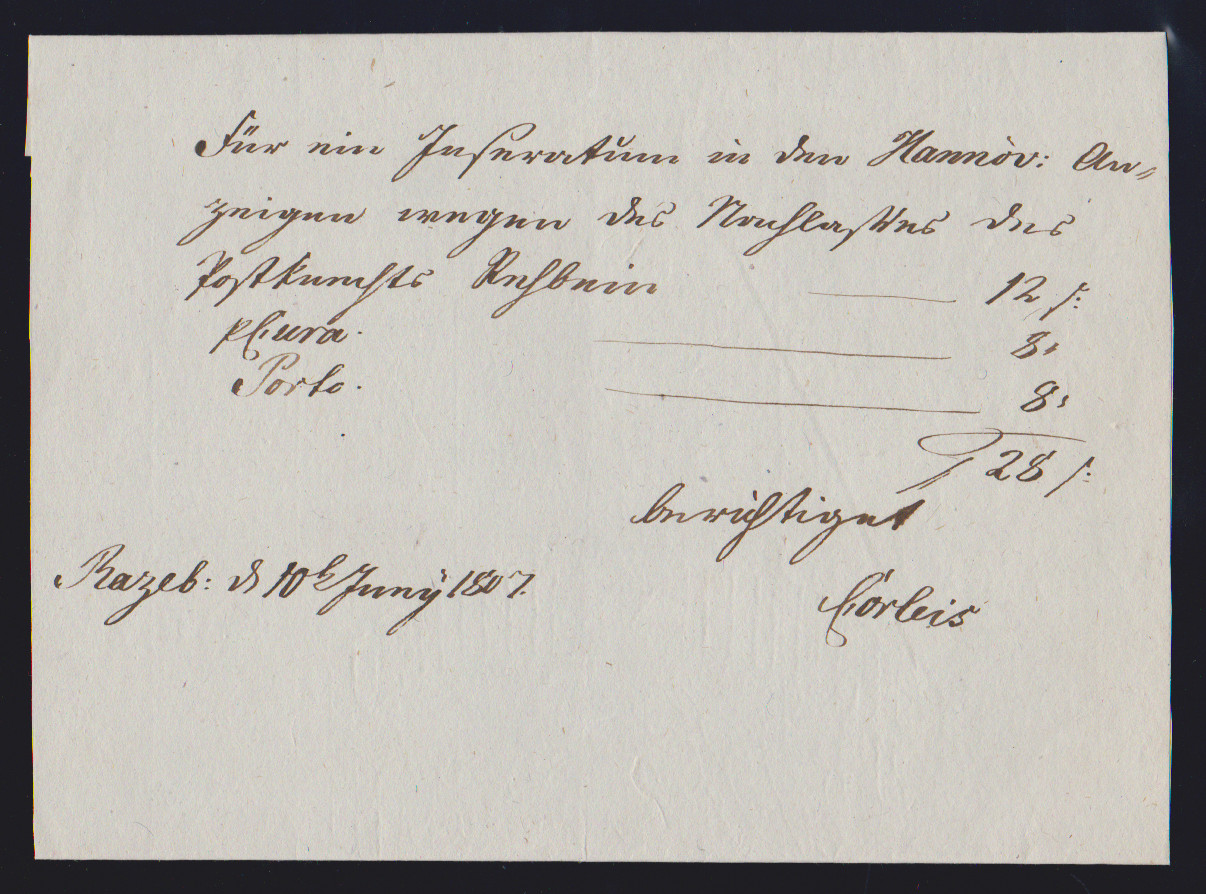 Für ein Inseratum in den Hannöv: An-
zeigen wegen des Nachlasses des
Postknechts Rehbein 12 ß:
p Cura. 8 "
Porto. 8 "
28 ß:
berichtiget
Razeb: d 10t Juny 1807.
Corleis